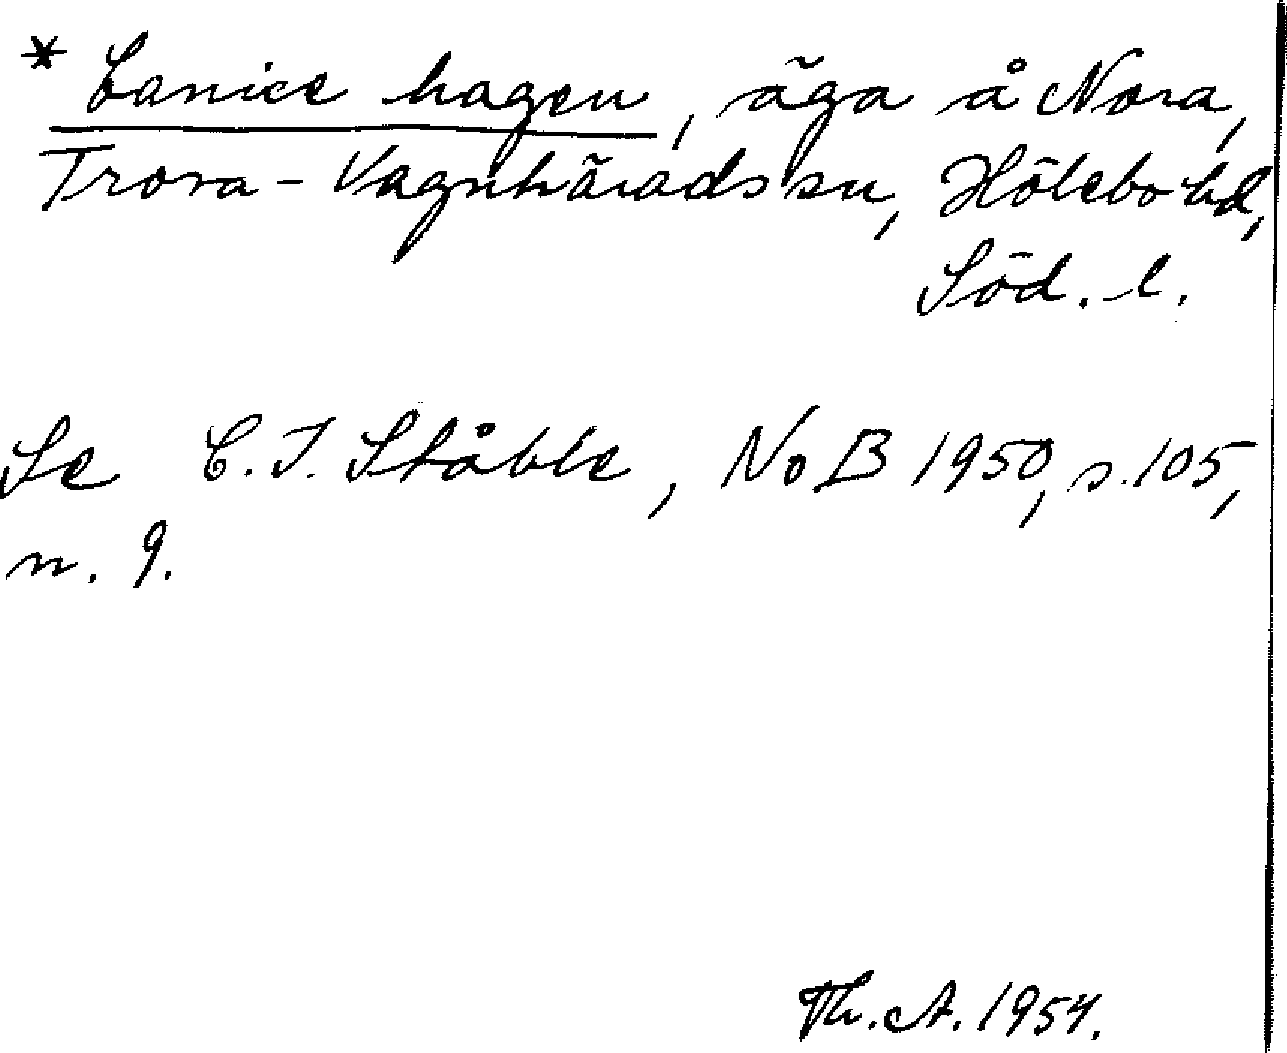 * Canice hagen, äga å Nora,
Trosa-Vagnhärads sn, Hölebo hd,
Söd. l.
Se C. I. Ståhle, NoB 1950, s. 105,
n. 9.
Th. A. 1954.